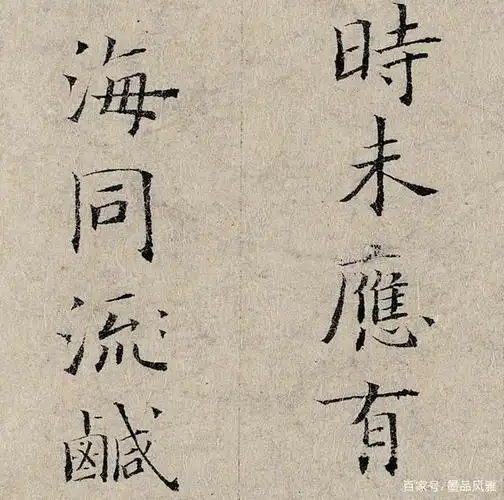 時未應有
海同流鹹
百家号/墨品风雅